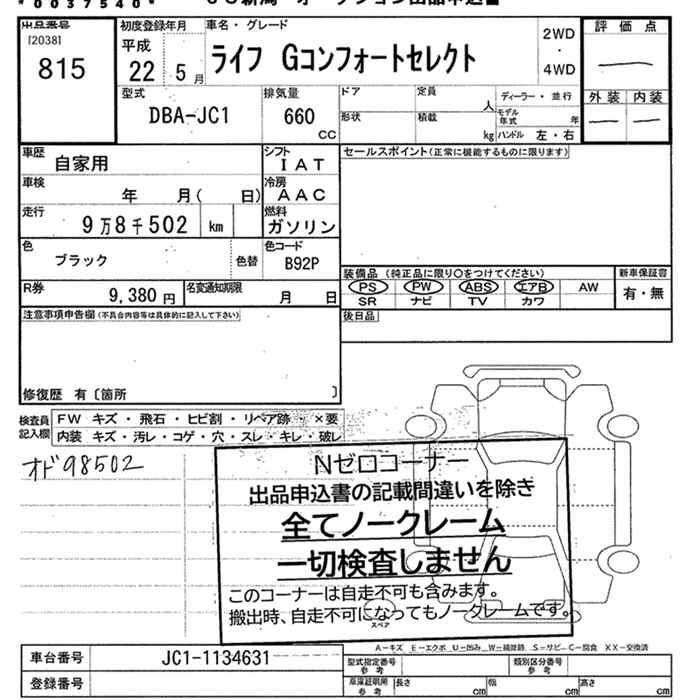 *0037540*
出品番号
[2038]
815
初度登録年月
平成
22 5月
車名・グレード
ライフ Gコンフォートセレクト
2WD
・
4WD
評価点
外装 内装
型式
DBA-JC1
排気量
660
cc
ドア
定員
人
形状
積載
kg
ディーラー・並行
モデル年式 年
ハンドル 左・右
車歴
自家用
シフト
IAT
車検
年 月( 日)
冷房
AAC
走行
9万8千502 km
燃料
ガソリン
色
ブラック
色替
色コード
B92P
R券
9,380 円
名変通知期限
月 日
セールスポイント(正常に機能するものに限ります)
装備品(純正品に限り○をつけてください)
PS PW ABS エアB AW
SR ナビ TV カワ
新車保証書
有・無
後日品
注意事項申告欄(不具合内容等は具体的に記入して下さい)
修復歴 有〔箇所 〕
検査員記入欄
FW キズ・飛石・ヒビ割・リペア跡・×要
内装 キズ・汚レ・コゲ・穴・スレ・キレ・破レ
オド98502
Nゼロコーナー
出品申込書の記載間違いを除き
全てノークレーム
一切検査しません
このコーナーは自走不可も含みます。
搬出時、自走不可になってもノークレームです。
スペア
A-キズ E-エクボ U-凹み W-補修跡 S-サビ C-腐食 XX-交換済
車台番号
JC1-1134631
登録番号
型式指定番号
参考
類別区分番号
参考
車庫証明用
参考
長さ cm
幅 cm
高さ cm